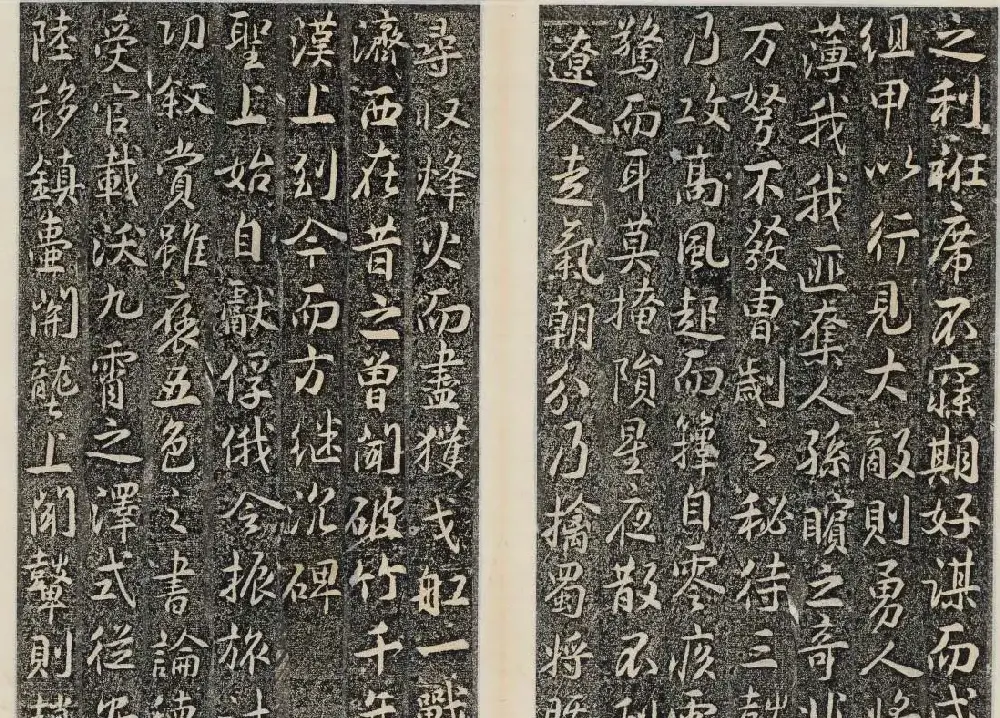 之利衽席不寐期好谋而成
组甲以行見大敵則勇人将
薄我我匪奪人孫臏之奇
万弩不發曹劌之秘待三
乃攻高風起而籜自零疾雷
驚而耳莫掩隕星夜散不
遼人走氣朝分乃擒蜀将
尋収烽火而盡獲戈舡一戰
濟西在昔之曽聞破竹千年
漠上到今而方继沉碑
聖上始自獻俘俄令振旅
功叙賞雖褒五色之書論德
受官載沃九霄之澤式從
陸移鎮畫閞龍上聞鼙則